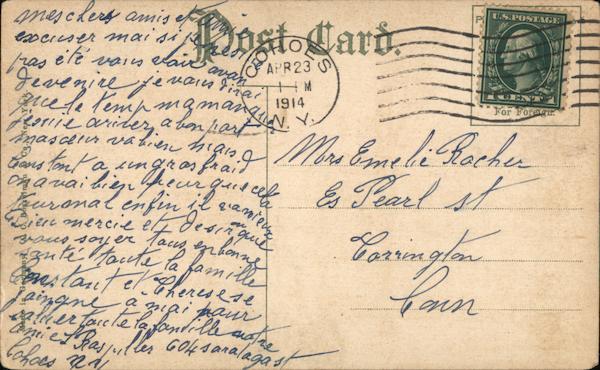 Post Card.
mes chers amis
excuser mai si je
pas été vous voir avan
devenire je vous dirai
que le temp ma manqu
arriver a bon port
ma sœur va bien mais
Constant a un gros froid
on avai bien peur que cela
journal enfin il va mieux
Dieu mercie et desir que
vous soyer tous en bonne
santé toute la famille
Constant et Therese se
joingne a mai pour
saluer toute la famille votre
amies 604 saratoga st
Cohoes N Y
COHOES
APR 23
1 M
1914
N.Y.
U.S. POSTAGE
1 CENT 1
For Foreign
Mrs Emelie Rocher
Es Pearl st
Torrington
Conn